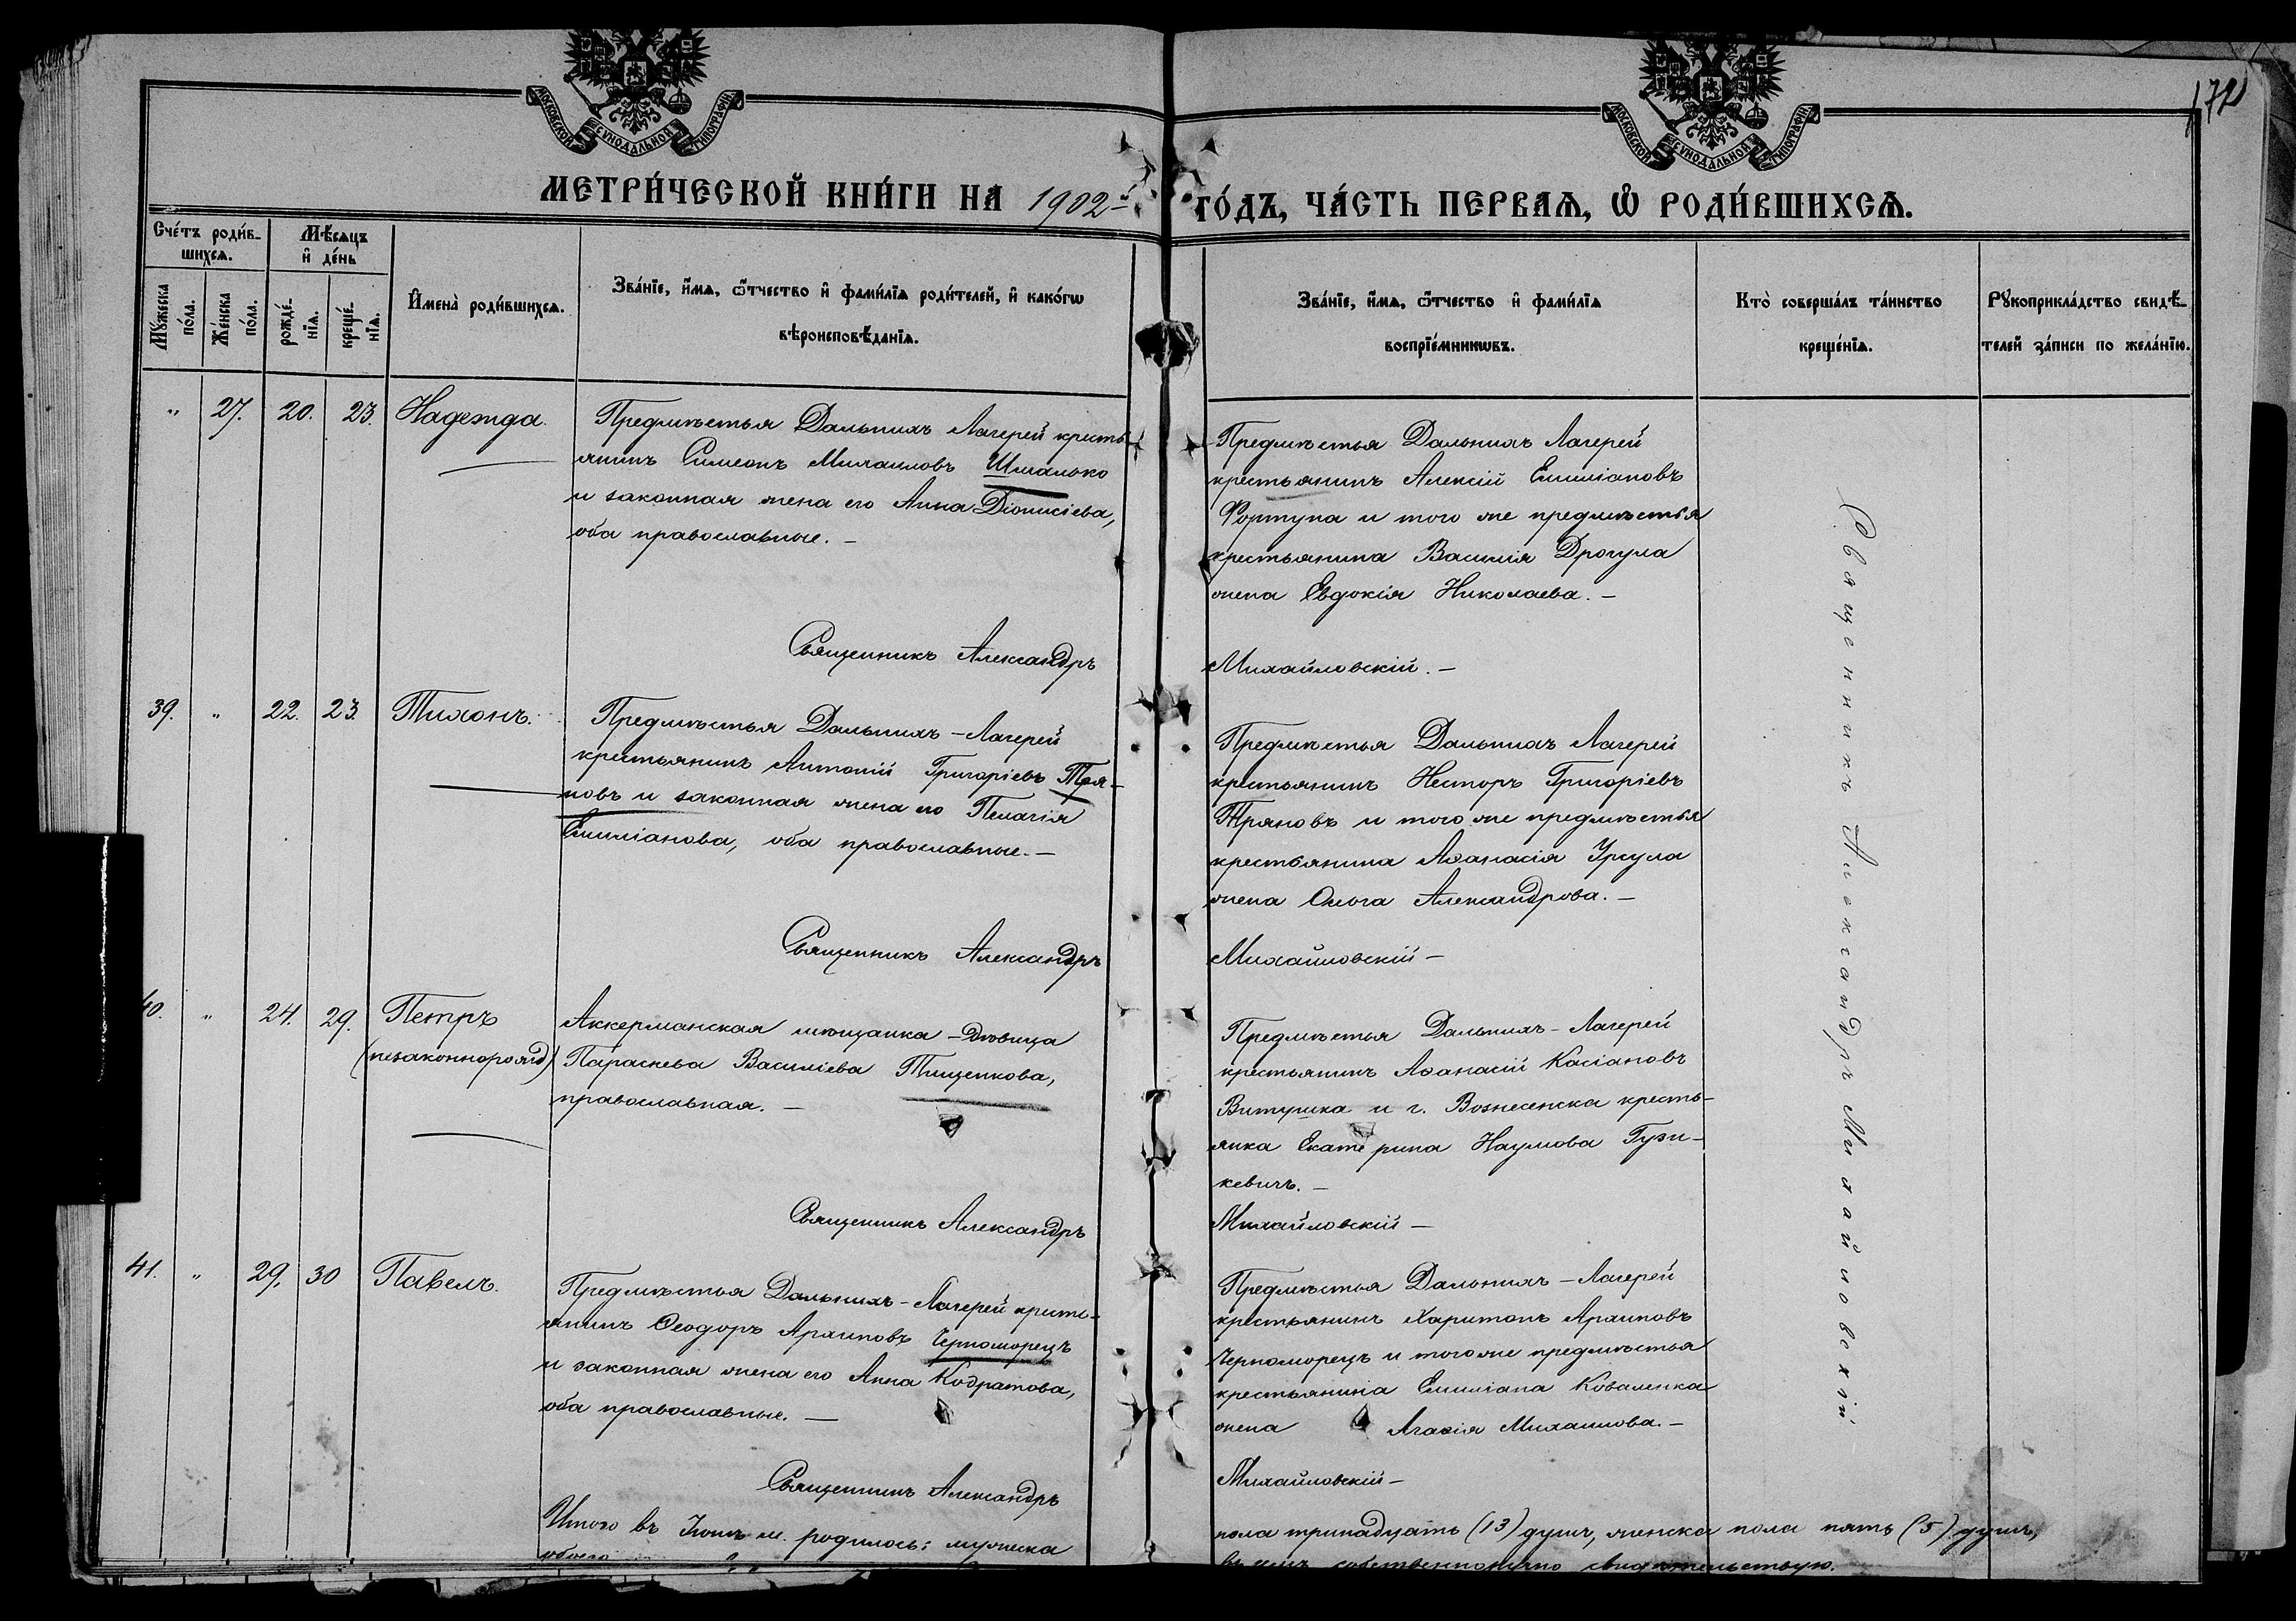 МОСКОВСКОЙ СѴНОДАЛЬНОЙ ТИПОГРАФІИ
МОСКОВСКОЙ СѴНОДАЛЬНОЙ ТИПОГРАФІИ
172
МЕТРИ́ЧЕСКОЙ КНИ́ГИ НА 1902й ГО́ДЪ, ЧА́СТЬ ПЕРВАѦ, Ѡ҆ РОДИ́ВШИХСѦ.
Сче́тъ роди́в-
шихсѧ.
Мѣ́сяцъ
и҆ де́нь
Мꙋ́жеска
по́ла.
Же́нска
по́ла.
рожде́-
нїѧ.
креще́-
нїѧ.
И҆мена̀ роди́вшихсѧ.
Зва́нїе, и҆́мѧ, ѻ҆́тчество и҆ фами́лїѧ роди́телей, и҆ како́гѡ
вѣроисповѣ́данїѧ.
Зва́нїе, и҆́мѧ, ѻ҆́тчество и҆ фами́лїѧ
воспрїе́мникѡвъ.
Кто̀ соверша́лъ та́инство
креще́нїѧ.
Рꙋкоприкла́дство свидѣ́-
телей за́писи по жела́нїю.
" 27. 20. 23. Надежда.
Предмѣстья Дальнихъ Лагерей кресть-
янинъ Симеонъ Михаиловъ Шмалько
и законная жена его Анна Діонисіева,
оба православные. –
Предмѣстья Дальнихъ Лагерей
крестьянинъ Алексій Емиліановъ
Фортуна и того же предмѣстья
крестьянина Василія Дрогула
жена Евдокія Николаева. –
Священникъ Александръ Михайловскій. –
39. " 22. 23. Тихонъ.
Предмѣстья Дальнихъ – Лагерей
крестьянинъ Антоній Григоріевъ Тря-
новъ и законная жена его Пелагія
Емиліанова, оба православные. –
Предмѣстья Дальнихъ Лагерей
крестьянинъ Несторъ Григоріевъ
Тряновъ и того же предмѣстья
крестьянина Аѳанасія Урсула
жена Ольга Александрова. –
Священникъ Александръ Михайловскій –
40. " 24. 29. Петръ
(незаконнорожд)
Аккерманская мѣщанка – дѣвица
Параскева Василіева Тищенкова,
православная. –
Предмѣстья Дальнихъ – Лагерей
крестьянинъ Аѳанасій Касіановъ
Витушка и г. Вознесенска кресть-
янка Екатерина Наумова Гузи-
кевичъ. –
Священникъ Александръ Михайловскій –
41. " 29. 30 Павелъ.
Предмѣстья Дальнихъ – Лагерей кресть-
янинъ Ѳеодоръ Архиповъ Черноморецъ
и законная жена его Анна Кодратова,
оба православные. –
Предмѣстья Дальнихъ – Лагерей
крестьянинъ Харитонъ Архиповъ
Черноморецъ и того же предмѣстья
крестьянина Емиліана Коваленка
жена Агафія Михаилова. –
Священникъ Александръ Михайловскій –
Священникъ Александръ Михайловскій
Итого въ Іюнѣ м. родилось: мужеска пола тринадцать (13) душъ, женска пола пять (5) душъ,
обоего
въ чемъ собственноручно свидѣтельствую.